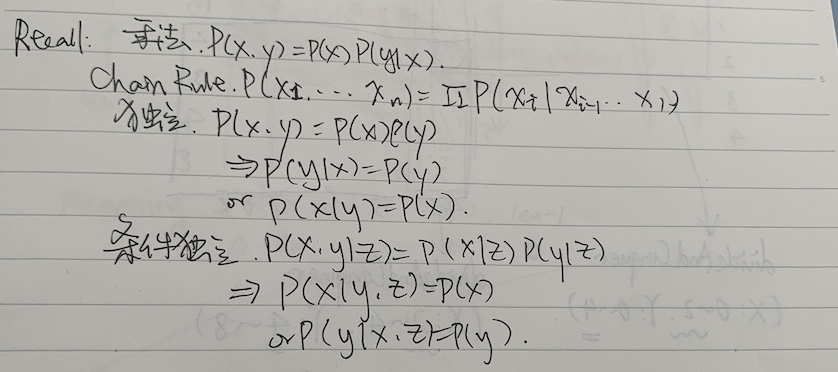 Recall: 乘法. P(x.y)=P(x)P(y|x).
Chain Rule. P(x1, ... xn) = ΠP(xi|xi-1...x1)
独立. P(x.y) = P(x)P(y)
⇒P(y|x)=P(y)
or P(x|y)=P(x).
条件独立. P(x.y|z)=P(x|z)P(y|z)
⇒ P(x|y.z)=P(x)
or P(y|x.z)=P(y).